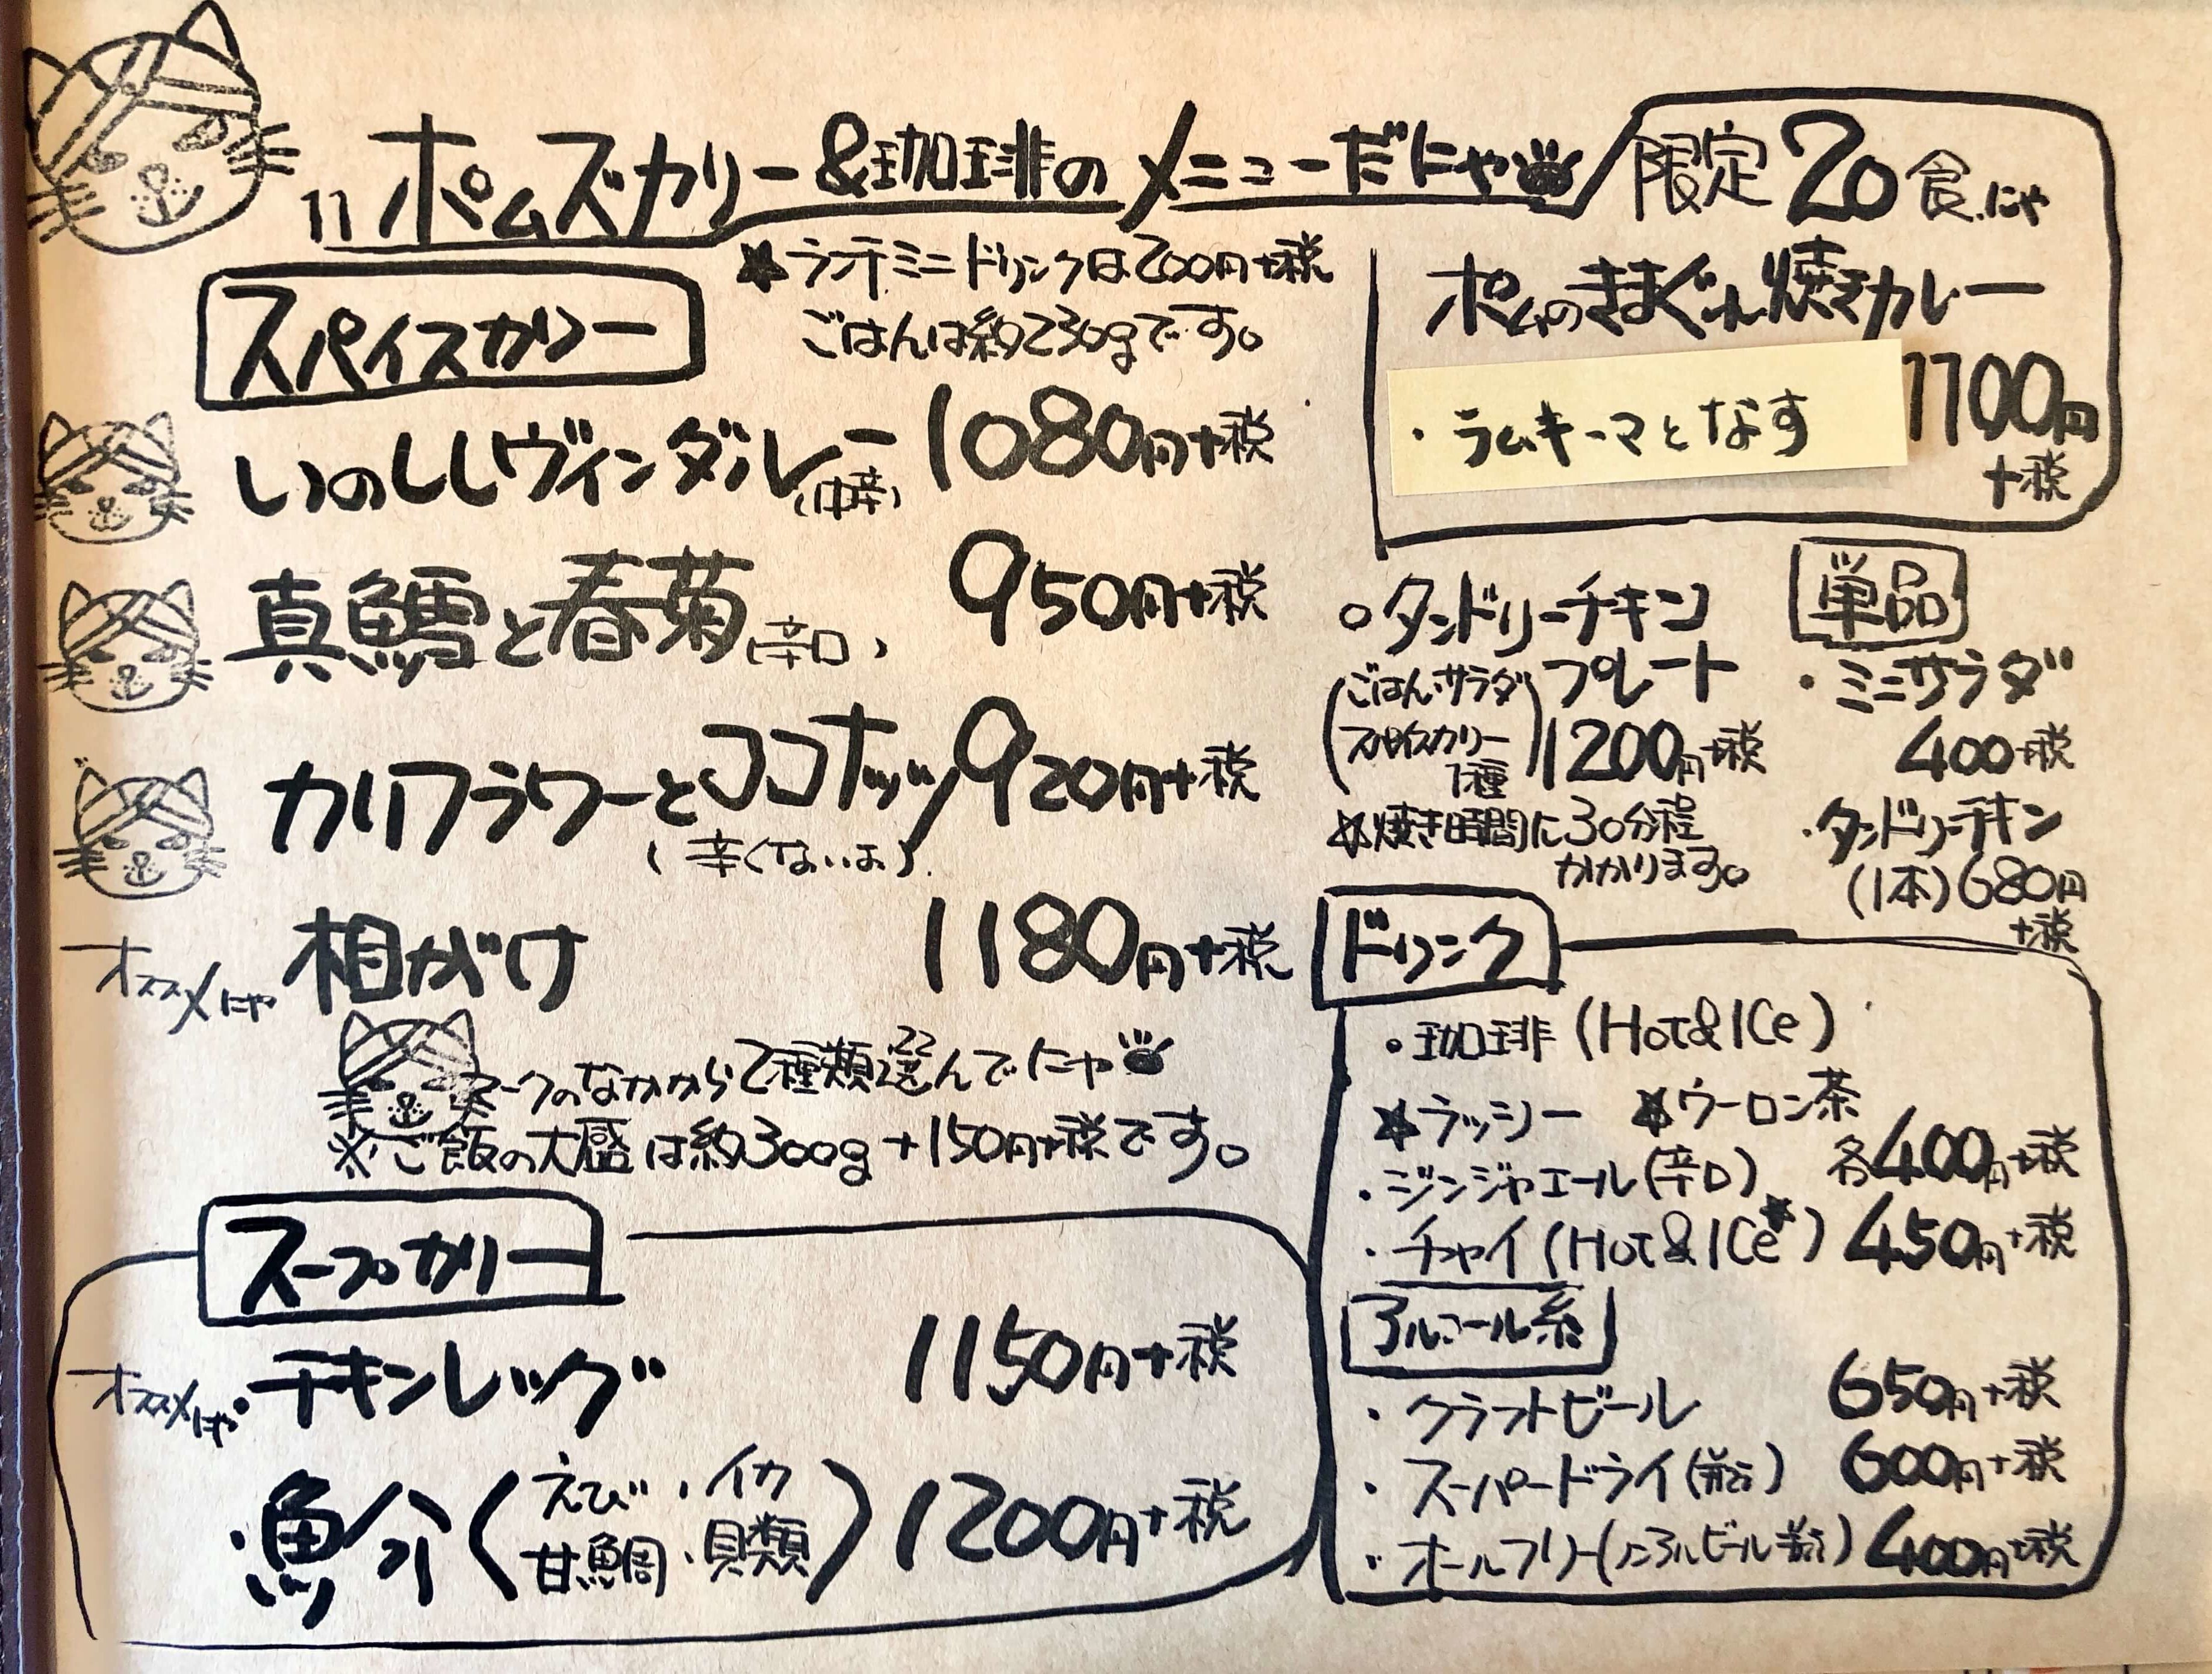 11 ポムズカリー&珈琲のメニューだにゃ
★ランチミニドリンクは200円+税
ごはんは約230gです。
スパイスカリー
いのししヴィンダルー(中辛) 1080円+税
真鱈と春菊(辛口) 950円+税
カリフラワーとココナッツ 920円+税
(辛くないよ)
オススメにゃ 相がけ 1180円+税
マークのなかから2種類選んでにゃ
※ご飯の大盛は約300g+150円+税です。
スープカリー
オススメにゃ チキンレッグ 1150円+税
魚介(えび・イカ
甘鯛・貝類) 1200円+税
限定20食にゃ
ポムのきまぐれ焼きカレー
・ラムキーマとなす
1100円
+税
○タンドリーチキン
プレート
(ごはん・サラダ
スパイスカリー
1種)
1200円+税
★焼き時間に30分程
かかります。
単品
・ミニサラダ
400+税
・タンドリーチキン
(1本)680円
+税
ドリンク
・珈琲(Hot&ICe)
★ラッシー ★ウーロン茶
・ジンジャエール(辛口) 各400円+税
・チャイ(Hot&ICe★) 450円+税
アルコール系
・クラフトビール 650円+税
・スーパードライ(瓶) 600円+税
・オールフリー(ノンアルビール瓶) 400円+税